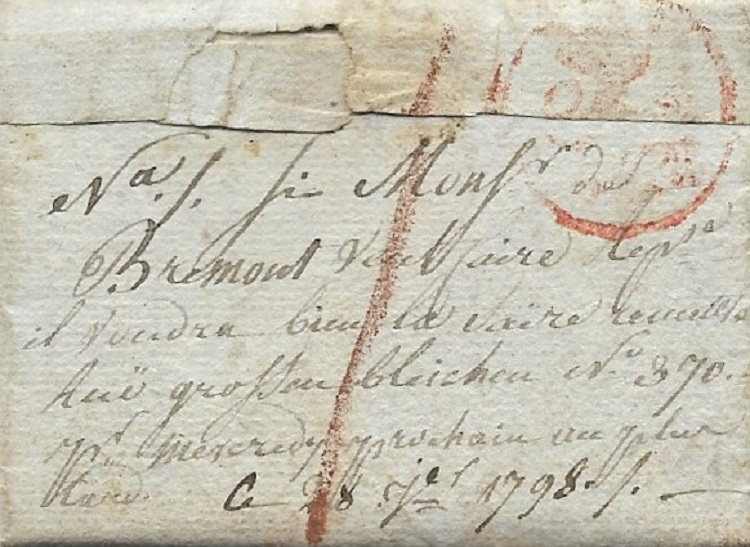 Na. /. si Monsr de
Bremont veut faire Repse
il voudra bien la faire remettre
Auë grossen bleichen No 370.
pr mercredy prochain au plus
tard. Ce 28 1798. /.